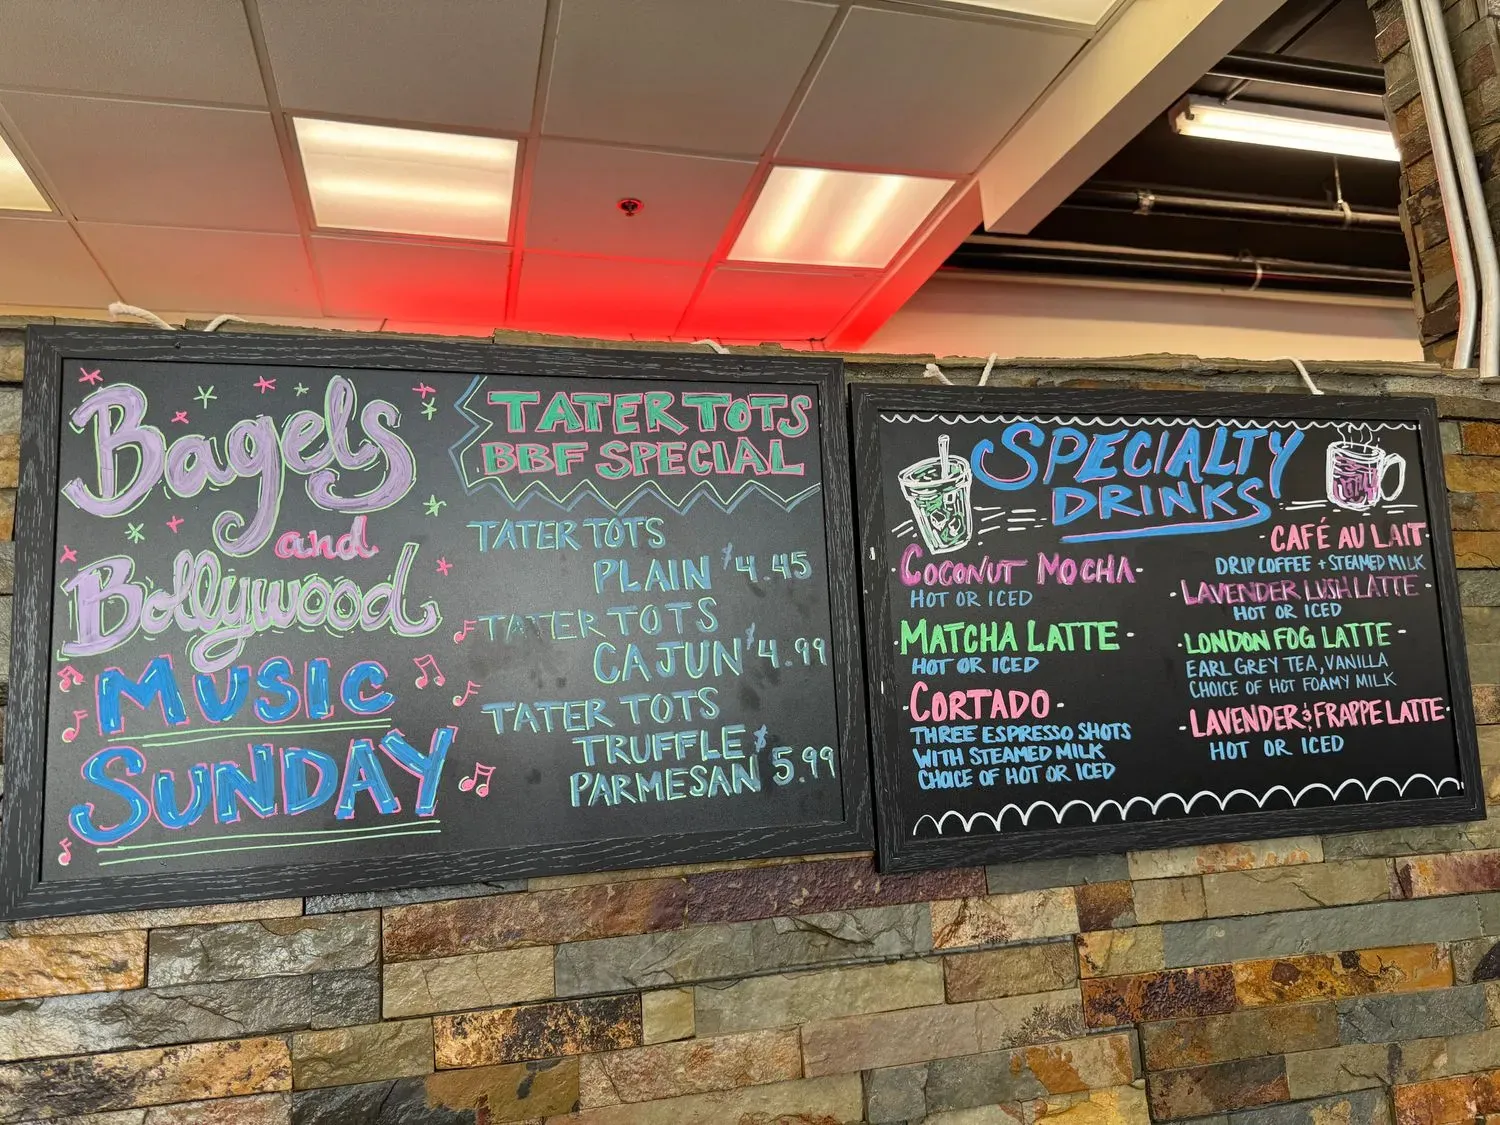 Bagels
and
Bollywood
MUSIC
SUNDAY
TATER TOTS
BBF SPECIAL
TATER TOTS
PLAIN $4.45
TATER TOTS
CAJUN $4.99
TATER TOTS
TRUFFLE
PARMESAN $5.99
SPECIALTY
DRINKS
COCONUT MOCHA-
HOT OR ICED
MATCHA LATTE-
HOT OR ICED
CORTADO-
THREE ESPRESSO SHOTS
WITH STEAMED MILK
CHOICE OF HOT OR ICED
CAFÉ AU LAIT
DRIP COFFEE + STEAMED MILK
LAVENDER LUSH LATTE
HOT OR ICED
LONDON FOG LATTE-
EARL GREY TEA, VANILLA
CHOICE OF HOT FOAMY MILK
LAVENDER & FRAPPE LATTE
HOT OR ICED